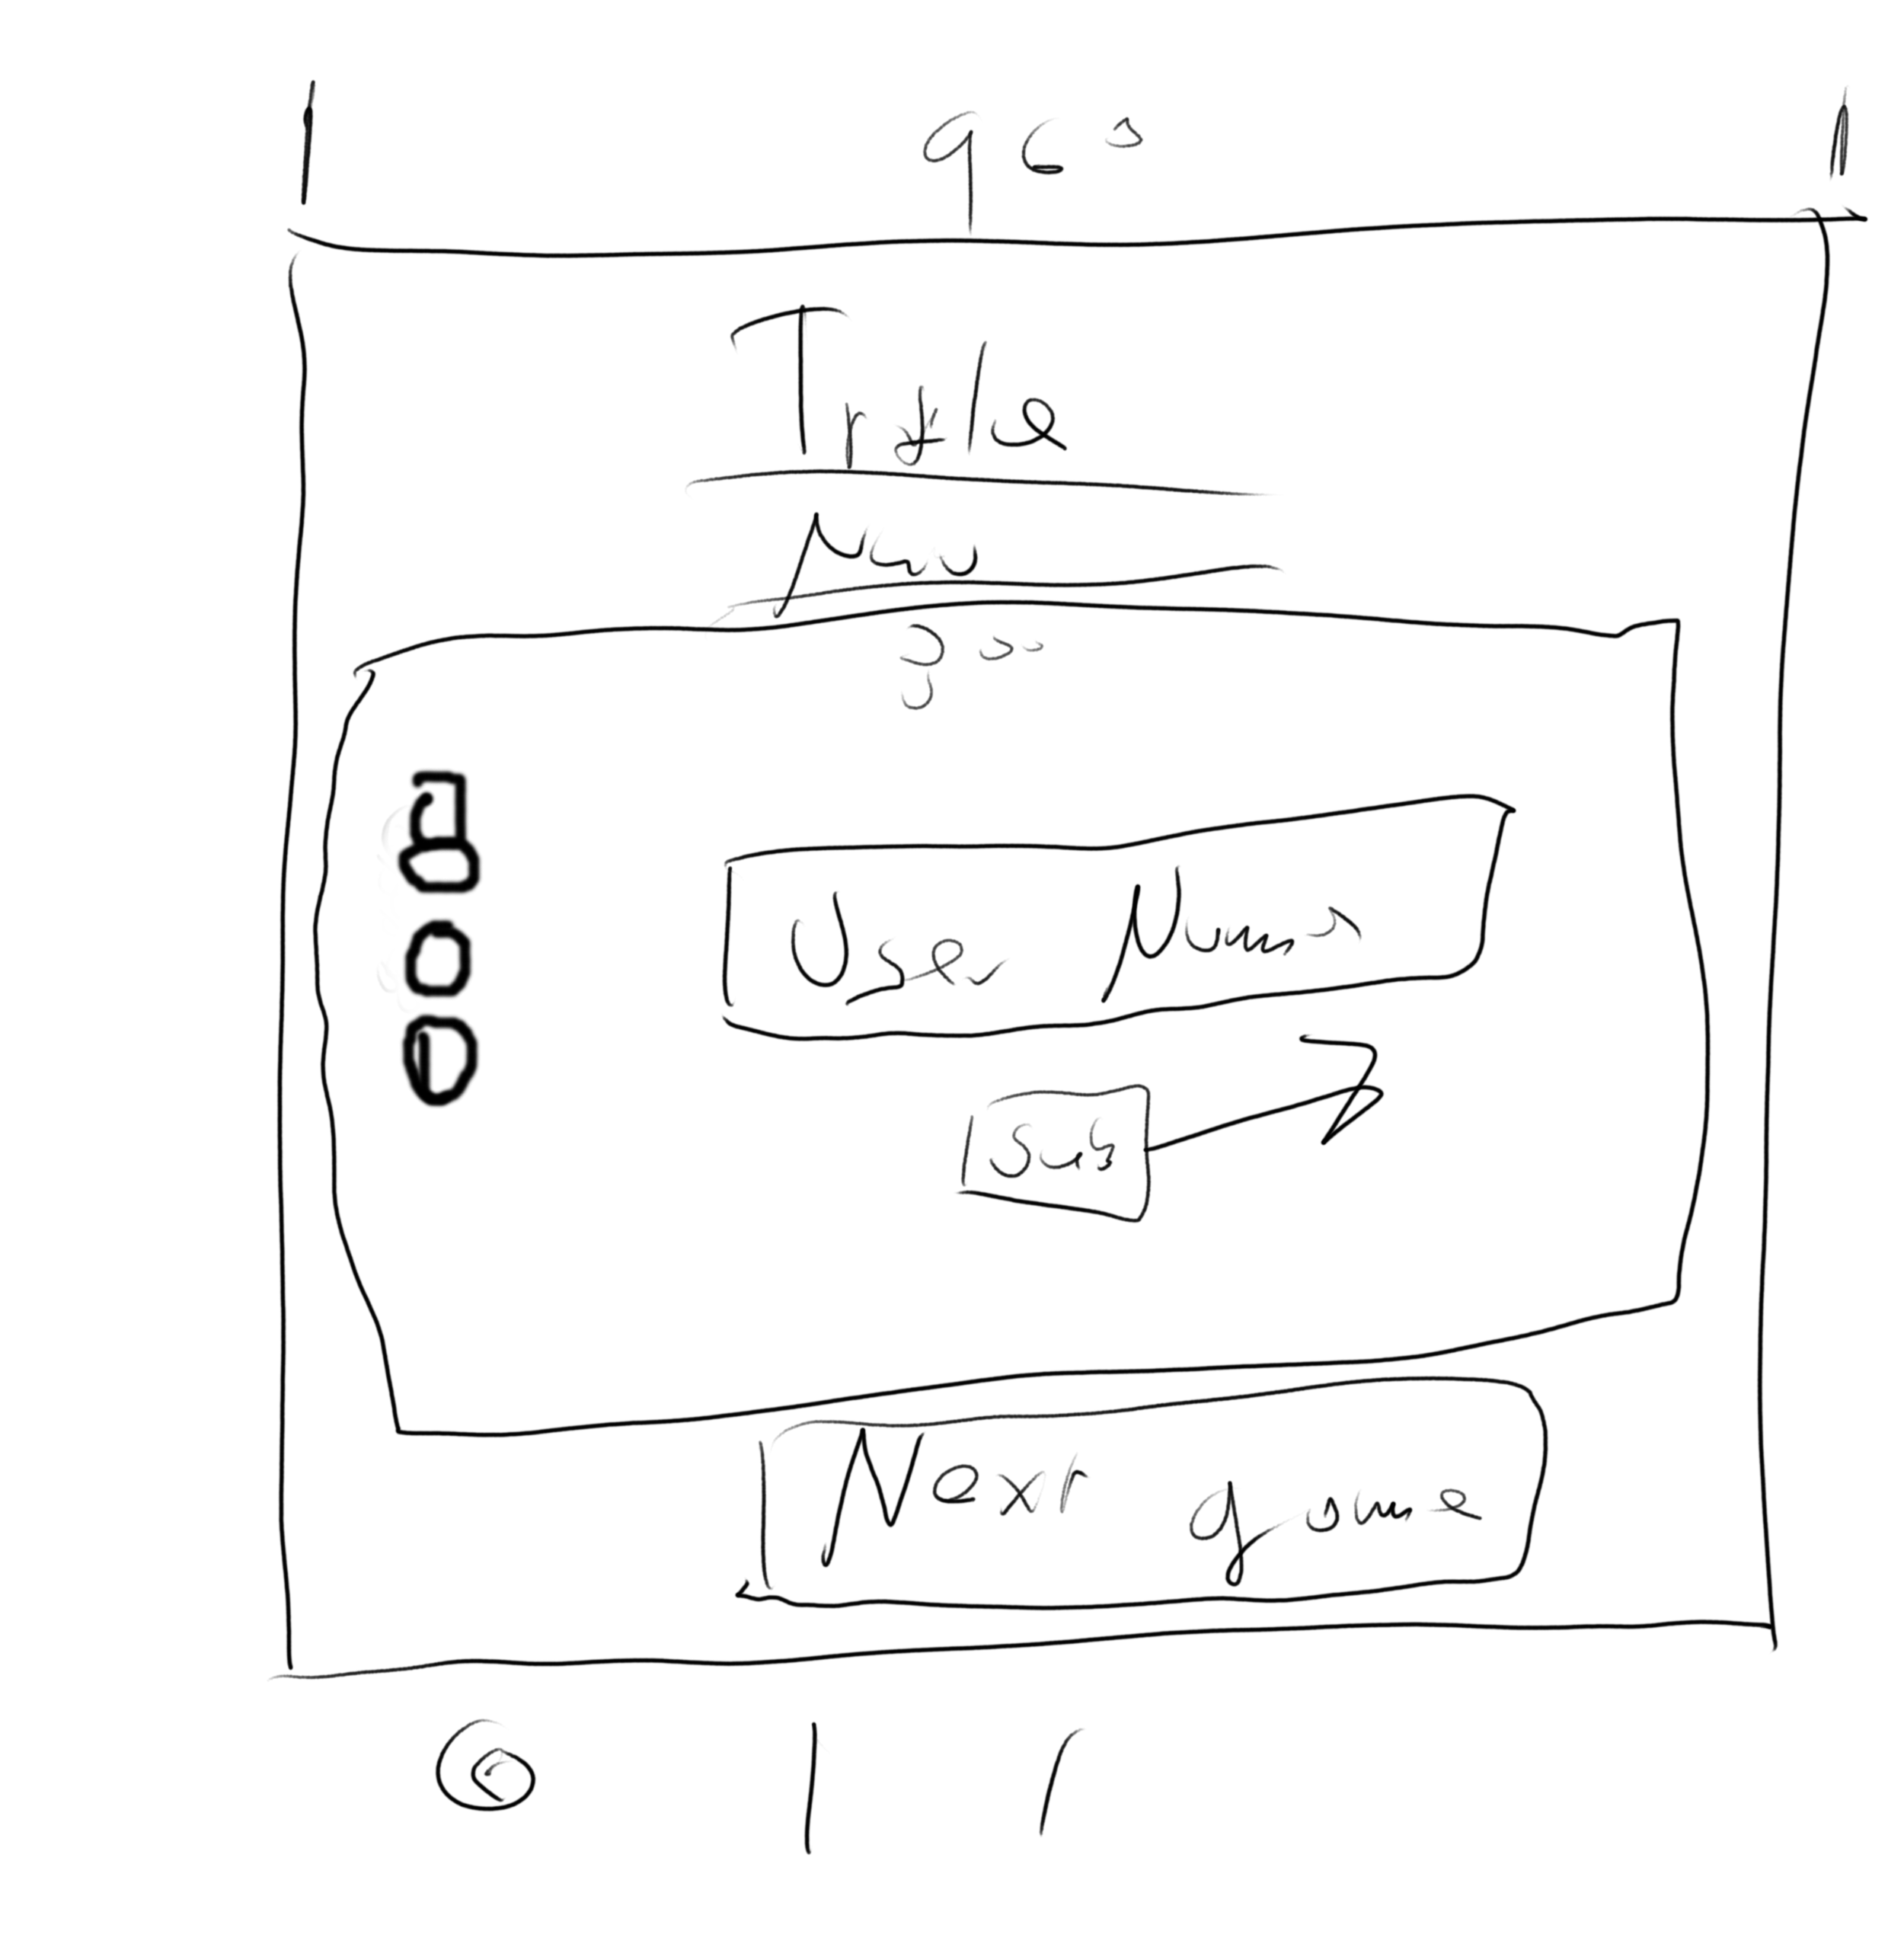 960
Title
Nav
300
User Name
Sub
Next game
©